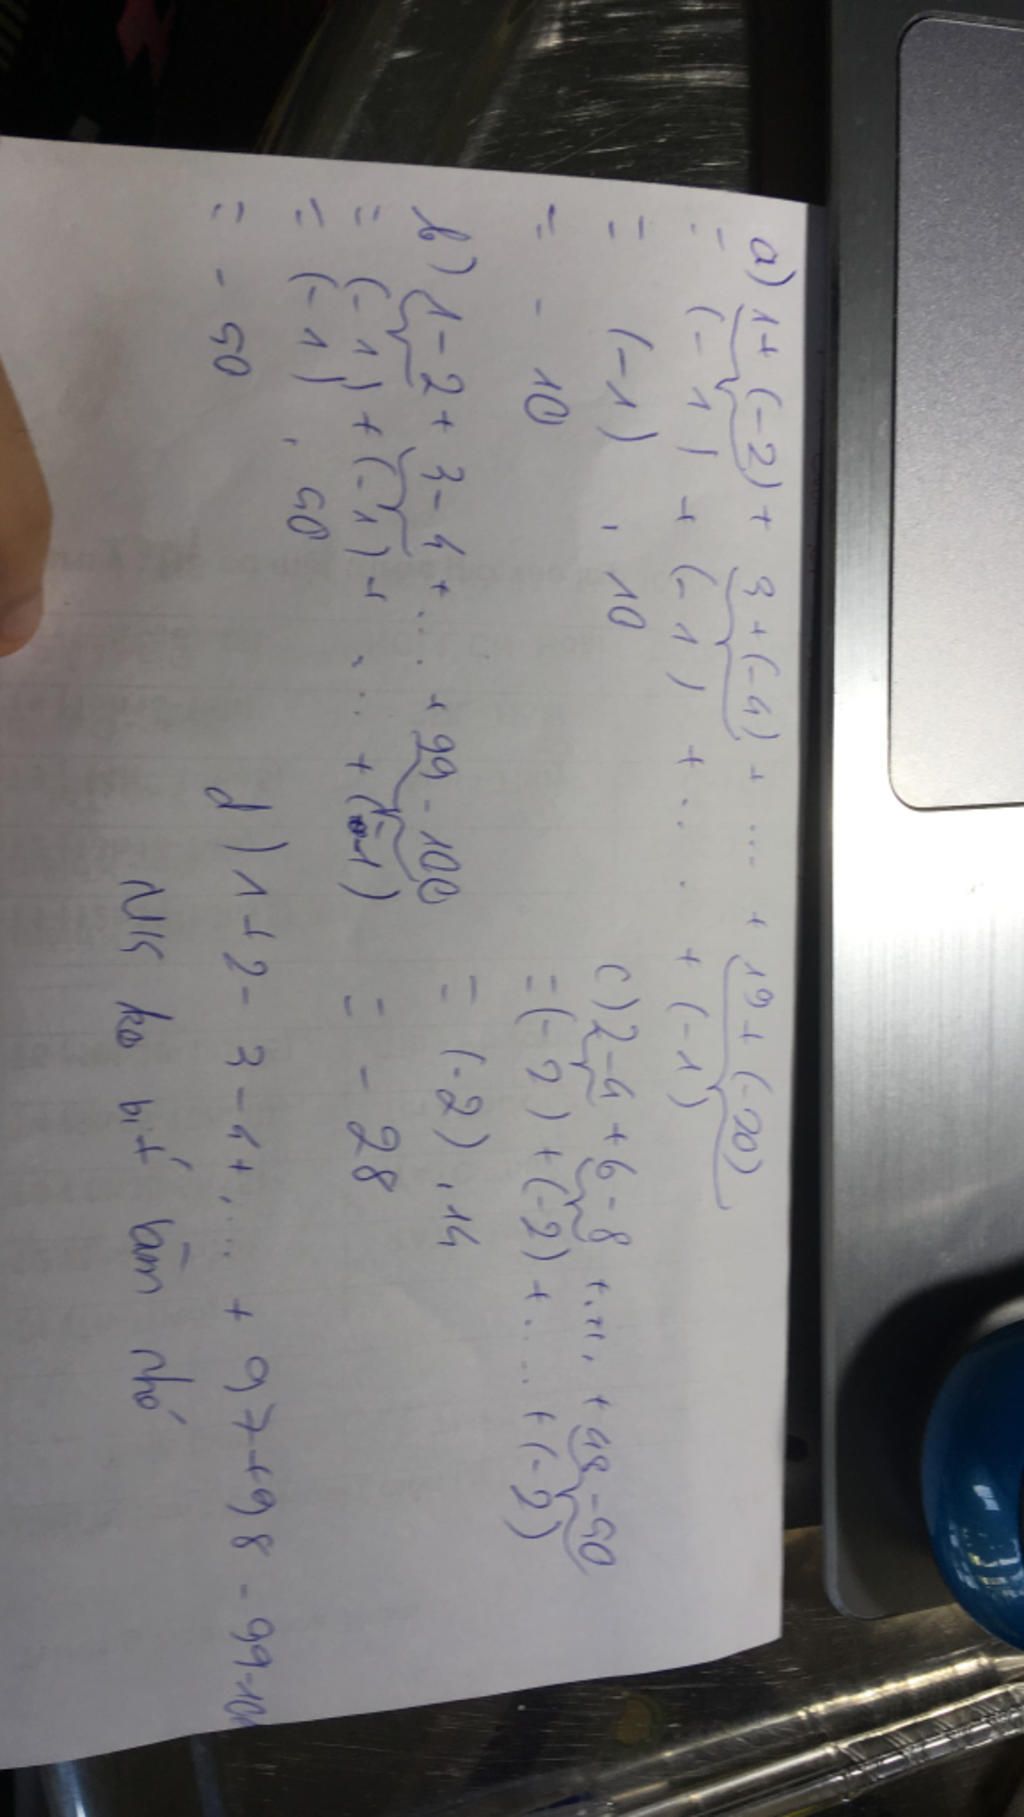 a) 1+ (-2) + 3+(-4) + ... + 19 + (-20)
= (-1) + (-1) + ... + (-1)
= (-1) . 10
= - 10
b) 1-2+ 3-4+ ... + 99 - 100
= (-1) + (-1) + ... + (-1)
= (-1) . 50
= - 50
c) 2-4 + 6-8 + ... + 48 - 50
= (-2) + (-2) + .... + (-2)
= (-2) . 14
= - 28
d) 1+2-3-4+ .... + 97+98 - 99-100
Mk ko bít làm nhó